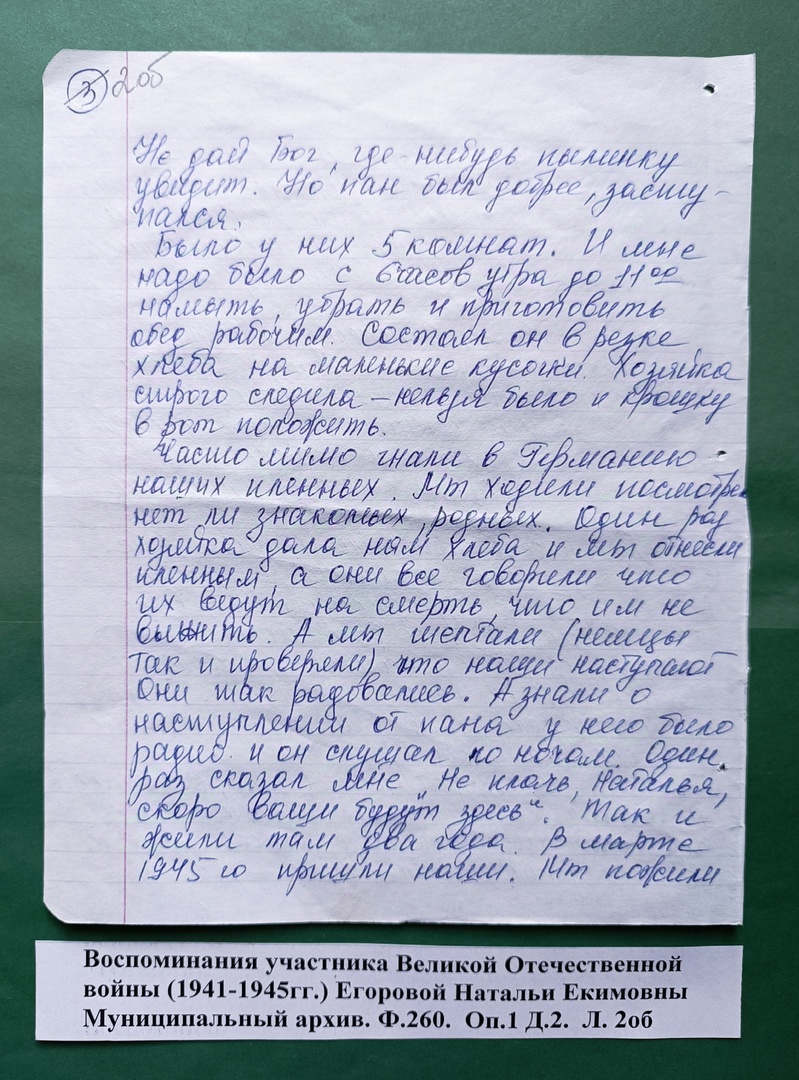 3 2об
Не дай Бог, где-нибудь пылинку
увидит. Но пан был добрее, засту-
пался.
Было у них 5 комнат. И мне
надо было с 6 часов утра до 11 00
намыть, убрать и приготовить
обед рабочим. Состоял он в резке
хлеба на маленькие кусочки. Хозяйка
строго следила – нельзя было и крошку
в рот положить.
Часто мимо гнали в Германию
наших пленных. Мы ходили посмотрет
нет ли знакомых, родных. Один раз
хозяйка дала нам хлеба и мы отнесли
пленным, а они все говорили что
их ведут на смерть, что им не
выжить. А мы шептали (немцы
так и проверяли) что наши наступают
Они так радовались. А знали о
наступлении от пана у него было
радио и он слушал по ночам. Один
раз сказал мне „Не плачь, Наталья,
скоро ваши будут здесь“. Так и
жили там два года. В марте
1945 го пришли наши. Мы пожили
Воспоминания участника Великой Отечественной
войны (1941-1945гг.) Егоровой Натальи Екимовны
Муниципальный архив. Ф.260. Оп.1 Д.2. Л. 2об